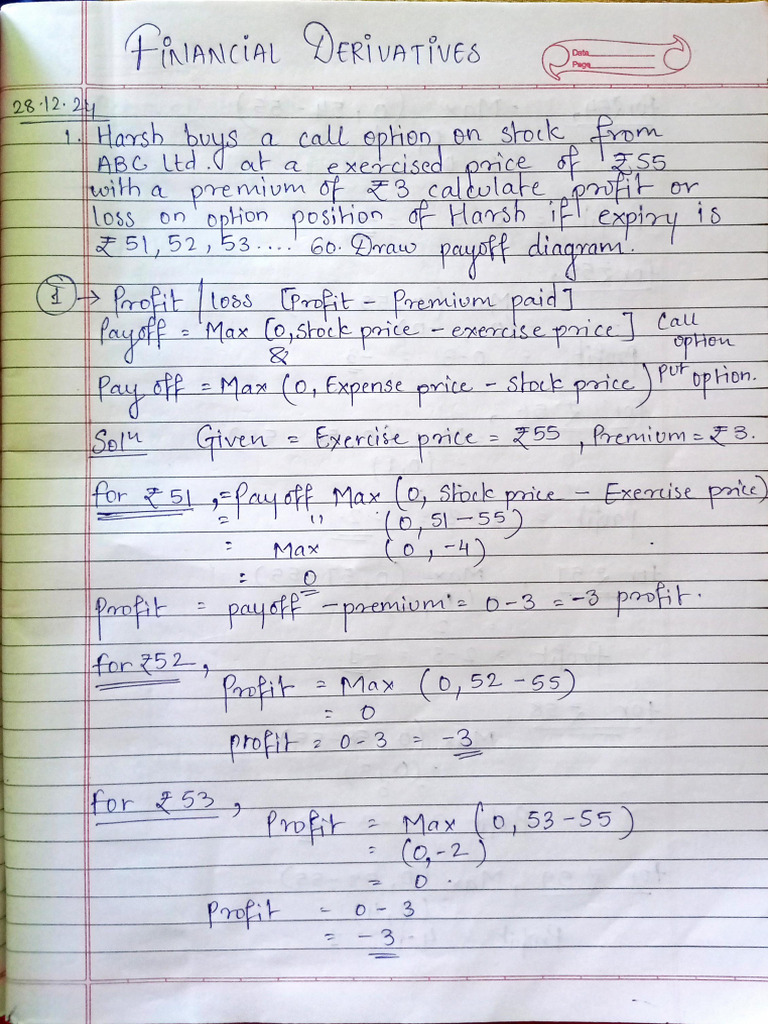 FINANCIAL DERIVATIVES
Date
Page
28.12.24
1. Harsh buys a call option on stock from
ABC Ltd. at a exercised price of ₹55
with a premium of ₹3 calculate profit or
loss on option position of Harsh if expiry is
₹51, 52, 53.... 60. Draw payoff diagram.
I → Profit / loss [Profit - Premium paid]
Payoff = Max [0, stock price - exercise price] Call option
&
Pay off = Max (0, Expense price - Stock price) put option.
Solⁿ Given = Exercise price = ₹55, Premium = ₹3.
for ₹51, = Payoff Max (0, Stock price - Exercise price)
= " (0, 51-55)
= Max (0, -4)
= 0
Profit = payoff - premium = 0-3 = -3 profit.
for ₹52,
Profit = Max (0, 52-55)
= 0
profit = 0-3 = -3
for ₹53,
Profit = Max (0, 53-55)
= (0,-2)
= 0.
Profit = 0-3
= -3